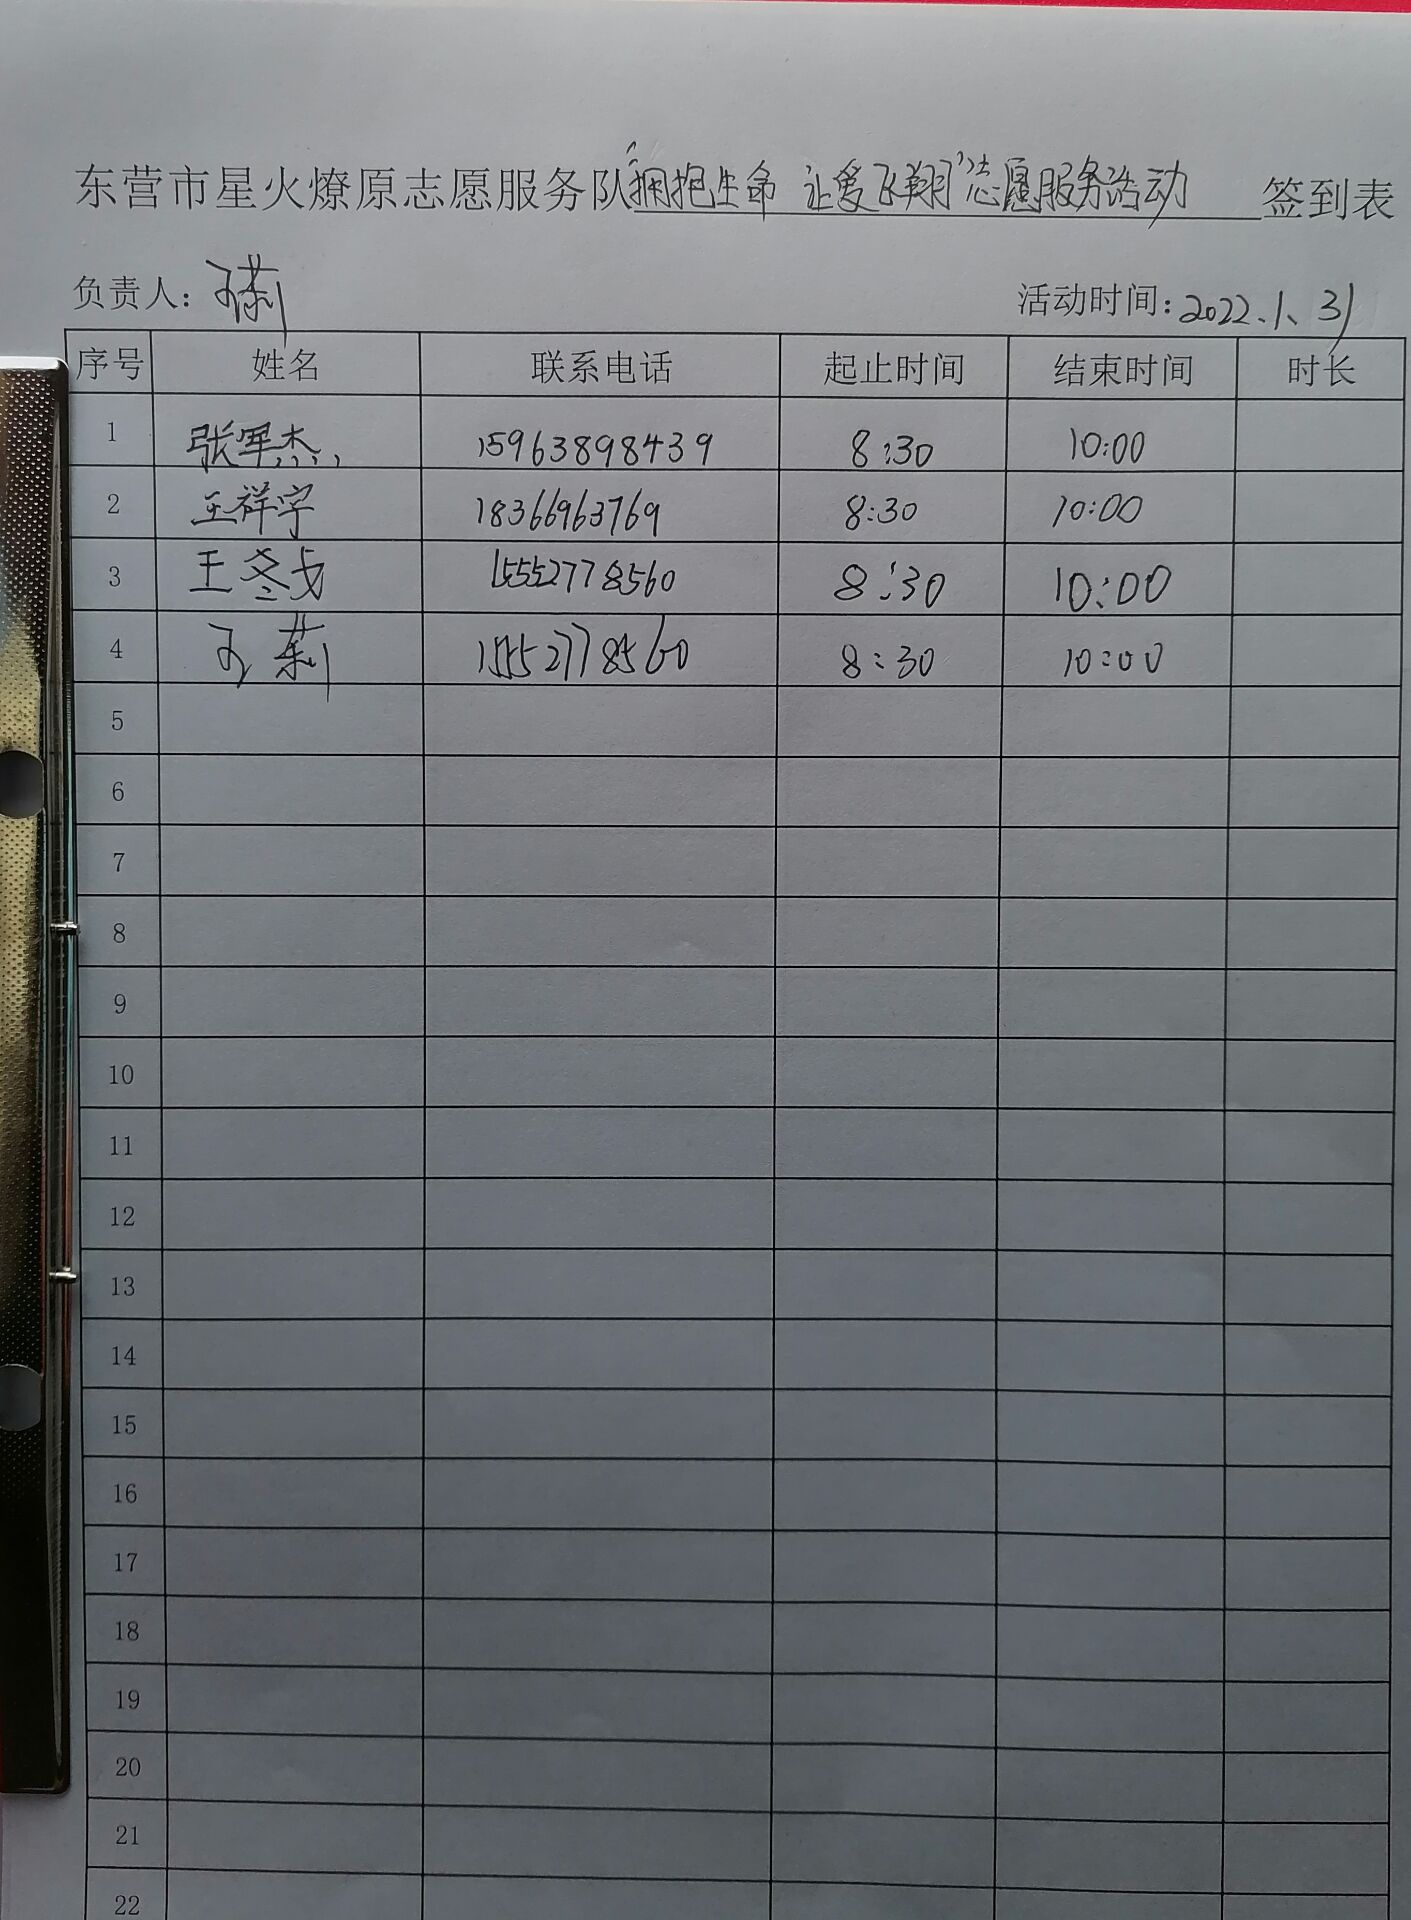 东营市星火燎原志愿服务队"拥抱生命 让爱飞翔"志愿服务活动 签到表
负责人: 孔莉 活动时间: 2022.1、31
序号 姓名 联系电话 起止时间 结束时间 时长
1 张军杰 15963898439 8:30 10:00
2 王祥宇 18366963769 8:30 10:00
3 王冬戈 15552778560 8:30 10:00
4 孔莉 15552778560 8:30 10:00
5
6
7
8
9
10
11
12
13
14
15
16
17
18
19
20
21
22